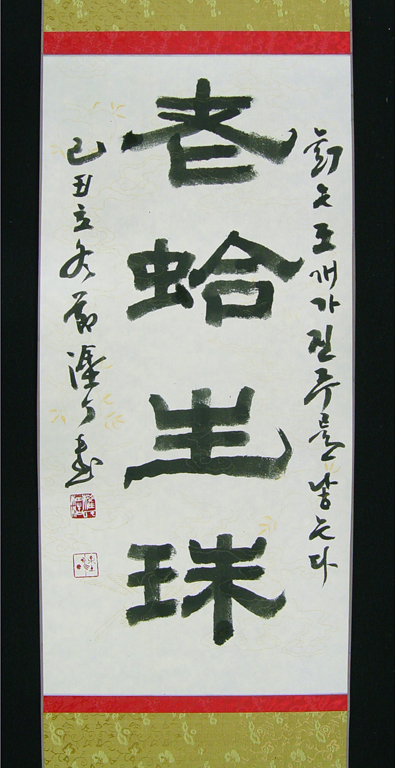 늙은 조개가 진주를 낳는다
老蛤生珠
己丑立冬節